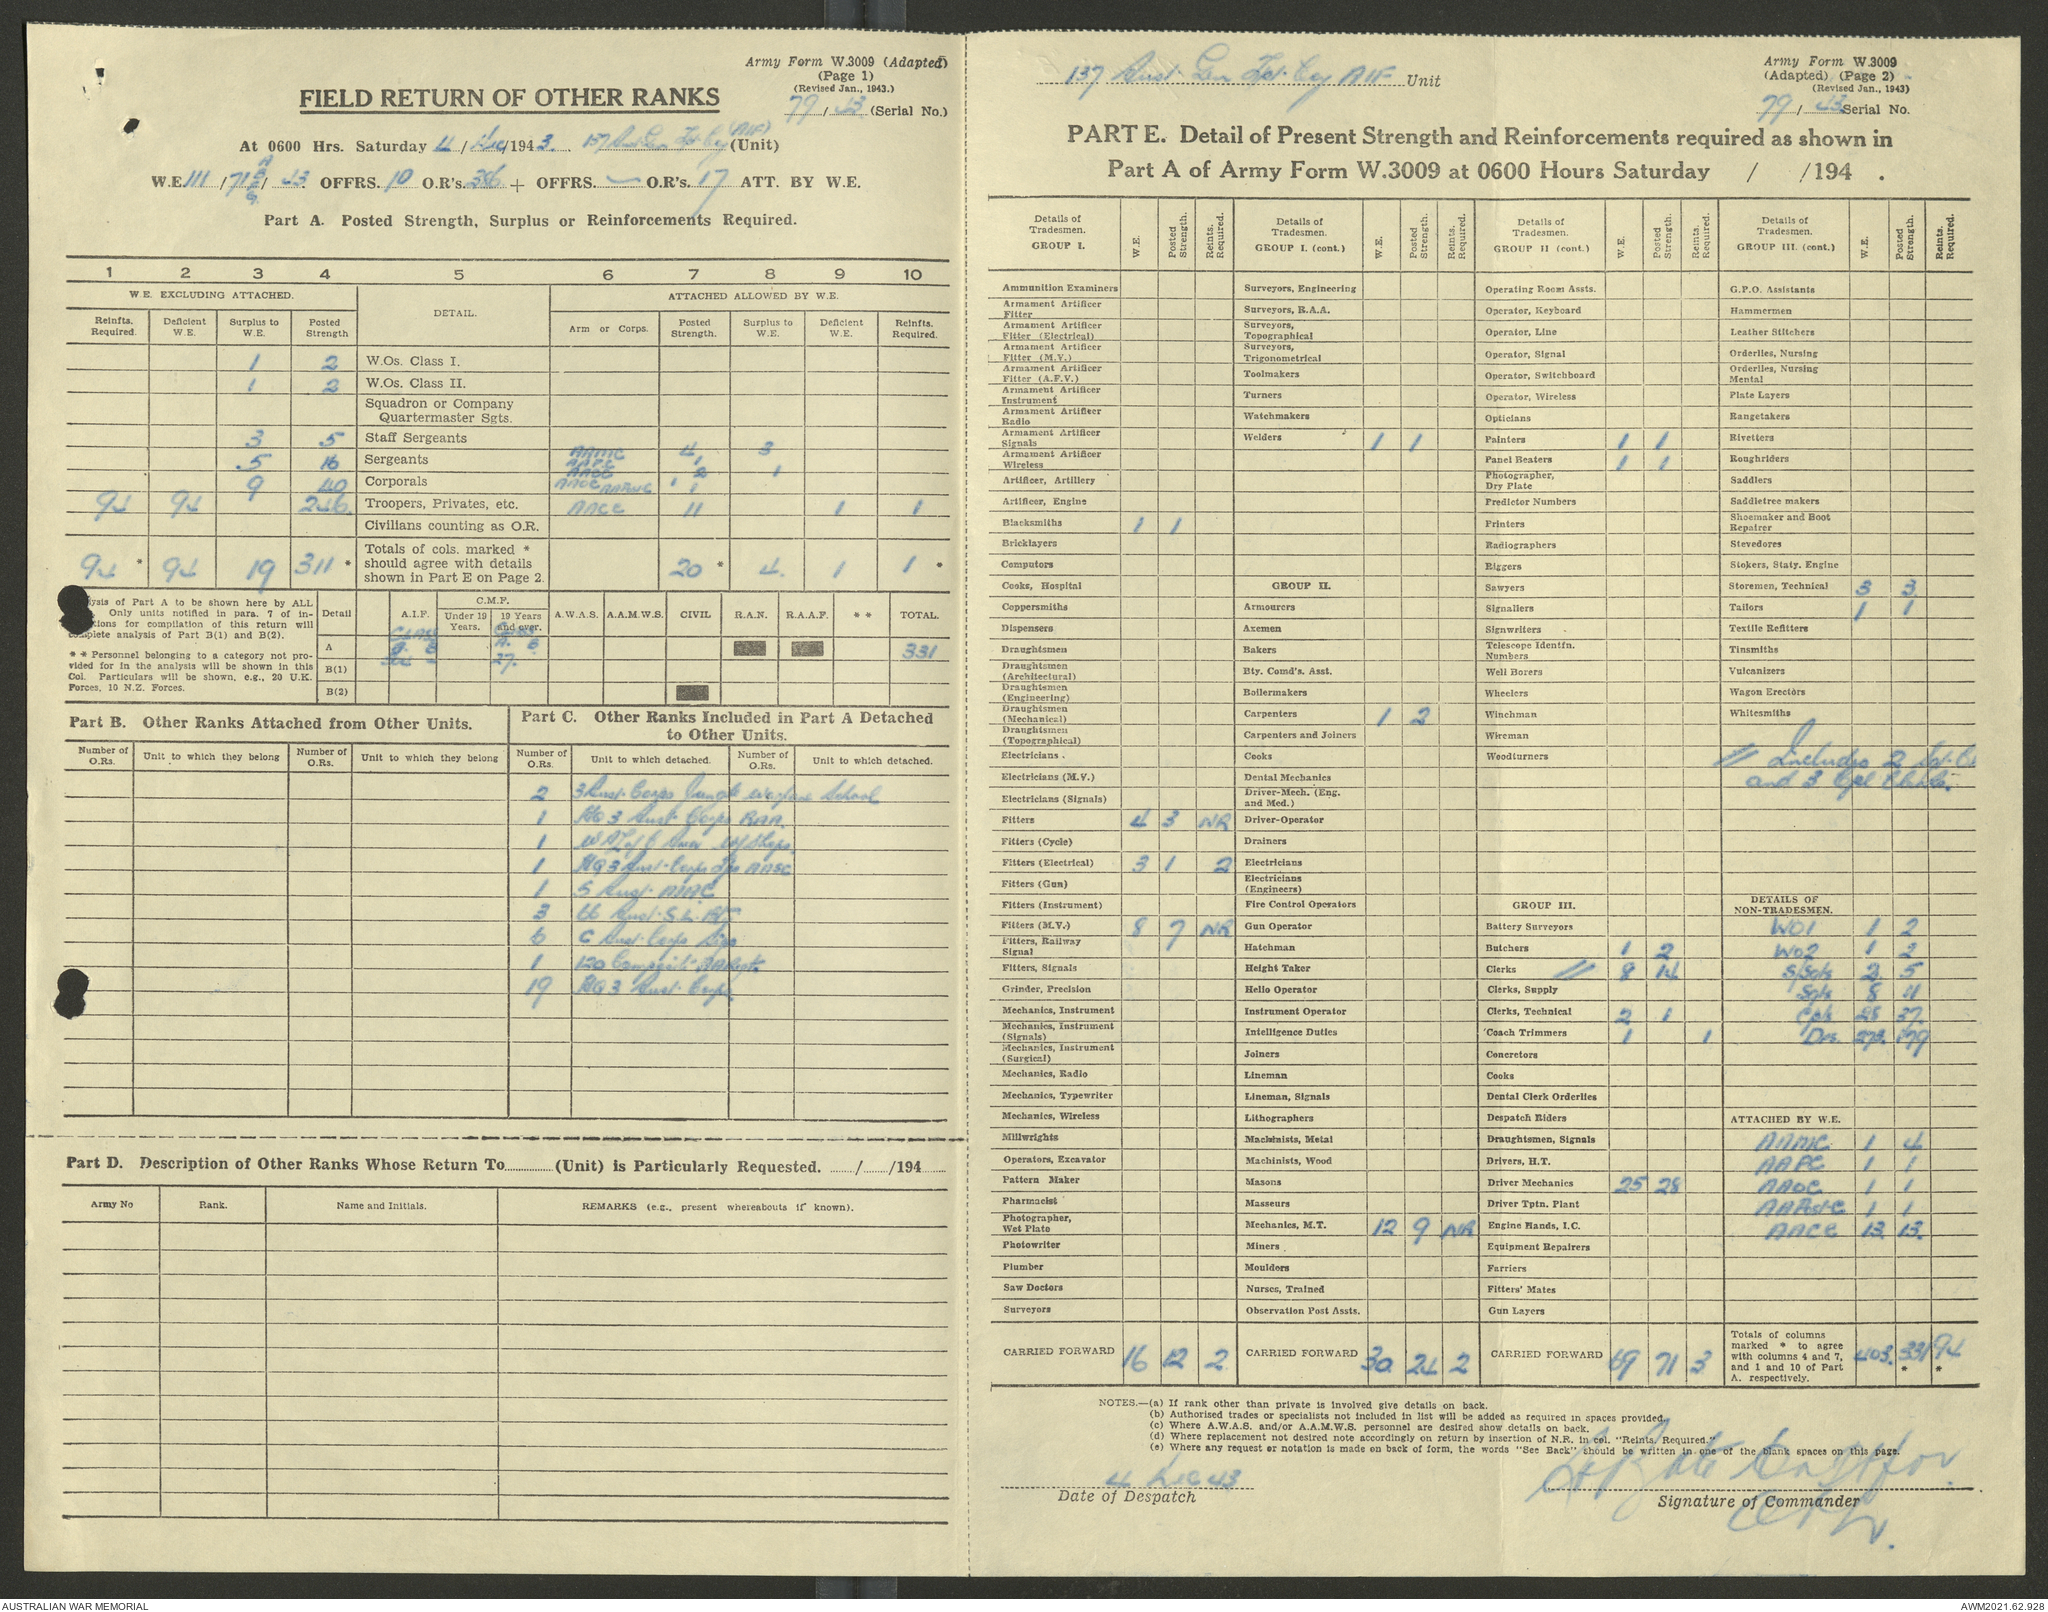 Army Form W.3009 (Adapted)
(Page 1)
(Revised Jan., 1943.)
79 / 43 (Serial No.)
FIELD RETURN OF OTHER RANKS
At 0600 Hrs. Saturday 4 / Dec /1943. 137 Aust Gen Tpt Coy (AIF) (Unit)
W.E. 111 / 71 / 43 OFFRS. 10 O.R's. 386 + OFFRS. — O.R's. 17 ATT. BY W.E.
Part A. Posted Strength, Surplus or Reinforcements Required.
1 2 3 4 5 6 7 8 9 10
W.E. EXCLUDING ATTACHED. DETAIL. ATTACHED ALLOWED BY W.E.
Reinfts. Required. Deficient W.E. Surplus to W.E. Posted Strength Arm or Corps. Posted Strength. Surplus to W.E. Deficient W.E. Reinfts. Required.
1 2 W.Os. Class I.
1 2 W.Os. Class II.
Squadron or Company Quartermaster Sgts.
3 5 Staff Sergeants
5 16 Sergeants AAMC 4 3
AAPC 1
9 40 Corporals AAOC 2 1
AAOC 1 1
94 94 246 Troopers, Privates, etc. AACC 11 1 1
Civilians counting as O.R.
94 * 94 19 311 * Totals of cols. marked * should agree with details shown in Part E on Page 2. 20 * 4 1 1 *
ysis of Part A to be shown here by ALL
Only units notified in para. 7 of in-
tions for compilation of this return will
complete analysis of Part B(1) and B(2).
* * Personnel belonging to a category not pro-
vided for in the analysis will be shown in this
Col. Particulars will be shown, e.g., 20 U.K.
Forces, 10 N.Z. Forces.
Detail A.I.F. C.M.F. Under 19 Years. 19 Years and over. A.W.A.S. A.A.M.W.S. CIVIL R.A.N. R.A.A.F. * * TOTAL
CLASS CLASS
A B A. B
A 27. 331
B(1)
B(2)
Part B. Other Ranks Attached from Other Units.
Number of O.Rs. Unit to which they belong Number of O.Rs. Unit to which they belong
Part C. Other Ranks Included in Part A Detached to Other Units.
Number of O.Rs. Unit to which detached. Number of O.Rs. Unit to which detached.
2 3 Aust Corps Jungle Warfare School
1 HQ 3 Aust Corps RAA
1 W A L of C Area W/Shops
1 HQ 3 Aust Corps Tps AASC
1 5 Aust
3 66 Aust S.L. Bty
6 C Aust Corps Sigs
1 120 Composite AA Regt.
19 HQ 3 Aust Corps
Part D. Description of Other Ranks Whose Return To (Unit) is Particularly Requested. / /194
Army No Rank. Name and Initials. REMARKS (e.g., present whereabouts if known).
137 Aust Gen Tpt Coy AIF Unit
Army Form W.3009
(Adapted) (Page 2)
(Revised Jan., 1943)
79 / 43 Serial No.
PART E. Detail of Present Strength and Reinforcements required as shown in
Part A of Army Form W.3009 at 0600 Hours Saturday / /194 .
Details of Tradesmen. GROUP I. W.E. Posted Strength. Reints. Required.
Ammunition Examiners
Armament Artificer Fitter
Armament Artificer Fitter (Electrical)
Armament Artificer Fitter (M.V.)
Armament Artificer Fitter (A.F.V.)
Armament Artificer Instrument
Armament Artificer Radio
Armament Artificer Signals
Armament Artificer Wireless
Artificer, Artillery
Artificer, Engine
Blacksmiths 1 1
Bricklayers
Computors
Cooks, Hospital
Coppersmiths
Dispensers
Draughtsmen
Draughtsmen (Architectural)
Draughtsmen (Engineering)
Draughtsmen (Mechanical)
Draughtsmen (Topographical)
Electricians
Electricians (M.V.)
Electricians (Signals)
Fitters 4 3 NR
Fitters (Cycle)
Fitters (Electrical) 3 1 2
Fitters (Gun)
Fitters (Instrument)
Fitters (M.V.) 8 7 NR
Fitters, Railway Signal
Fitters, Signals
Grinder, Precision
Mechanics, Instrument
Mechanics, Instrument (Signals)
Mechanics, Instrument (Surgical)
Mechanics, Radio
Mechanics, Typewriter
Mechanics, Wireless
Millwrights
Operators, Excavator
Pattern Maker
Pharmacist
Photographer, Wet Plate
Photowriter
Plumber
Saw Doctors
Surveyors
CARRIED FORWARD 16 12 2
Details of Tradesmen. GROUP I. (cont.) W.E. Posted Strength. Reints. Required.
Surveyors, Engineering
Surveyors, R.A.A.
Surveyors, Topographical
Surveyors, Trigonometrical
Toolmakers
Turners
Watchmakers
Welders 1 1
GROUP II.
Armourers
Axemen
Bakers
Bty. Comd's. Asst.
Boilermakers
Carpenters 1 2
Carpenters and Joiners
Cooks
Dental Mechanics
Driver-Mech. (Eng. and Med.)
Driver-Operator
Drainers
Electricians
Electricians (Engineers)
Fire Control Operators
Gun Operator
Hatchman
Height Taker
Hello Operator
Instrument Operator
Intelligence Duties
Joiners
Lineman
Lineman, Signals
Lithographers
Machinists, Metal
Machinists, Wood
Masons
Masseurs
Mechanics, M.T. 12 9 NR
Miners
Moulders
Nurses, Trained
Observation Post Assts.
CARRIED FORWARD 30 24 2
Details of Tradesmen. GROUP II (cont.) W.E. Posted Strength. Reints. Required.
Operating Room Assts.
Operator, Keyboard
Operator, Line
Operator, Signal
Operator, Switchboard
Operator, Wireless
Opticians
Painters 1 1
Panel Beaters 1 1
Photographer, Dry Plate
Predictor Numbers
Printers
Radiographers
Riggers
Sawyers
Signallers
Signwriters
Telescope Identfn. Numbers
Well Borers
Wheelers
Winchman
Wireman
Woodturners
GROUP III.
Battery Surveyors
Butchers 1 2
Clerks // 8 14
Clerks, Supply
Clerks, Technical 2 1
Coach Trimmers 1 1
Concretors
Cooks
Dental Clerk Orderlies
Despatch Riders
Draughtsmen, Signals
Drivers, H.T.
Driver Mechanics 25 28
Driver Tptn. Plant
Engine Hands, I.C.
Equipment Repairers
Farriers
Fitters' Mates
Gun Layers
CARRIED FORWARD 69 71 3
Details of Tradesmen. GROUP III. (cont.) W.E. Posted Strength. Reints. Required.
G.P.O. Assistants
Hammermen
Leather Stitchers
Orderlies, Nursing
Orderlies, Nursing Mental
Plate Layers
Rangetakers
Rivetters
Roughriders
Saddlers
Saddletree makers
Shoemaker and Boot Repairer
Stevedores
Stokers, Staty. Engine
Storemen, Technical 3 3
Tailors 1 1
Textile Refitters
Tinsmiths
Vulcanizers
Wagon Erectors
Whitesmiths
// Includes 2
and 3 Cpl Clerks.
DETAILS OF NON-TRADESMEN.
WO1 1 2
WO2 1 2
S/Sgts 2 5
Sgts 8 11
Cpls 28 37
Dvs. 273 179
ATTACHED BY W.E.
AAMC 1 4
AAPC 1 1
AAOC 1 1
AAPostC 1 1
AACC 13 13
Totals of columns marked * to agree with columns 4 and 7, and 1 and 10 of Part A. respectively. 403 331 * 94 *
NOTES.—(a) If rank other than private is involved give details on back.
(b) Authorised trades or specialists not included in list will be added as required in spaces provided.
(c) Where A.W.A.S. and/or A.A.M.W.S. personnel are desired show details on back.
(d) Where replacement not desired note accordingly on return by insertion of N.R. in col. "Reints. Required."
(e) Where any request or notation is made on back of form, the words "See Back" should be written in one of the blank spaces on this page.
4 Dec 43
Date of Despatch
Signature of Commander
AUSTRALIAN WAR MEMORIAL
AWM2021.62.928